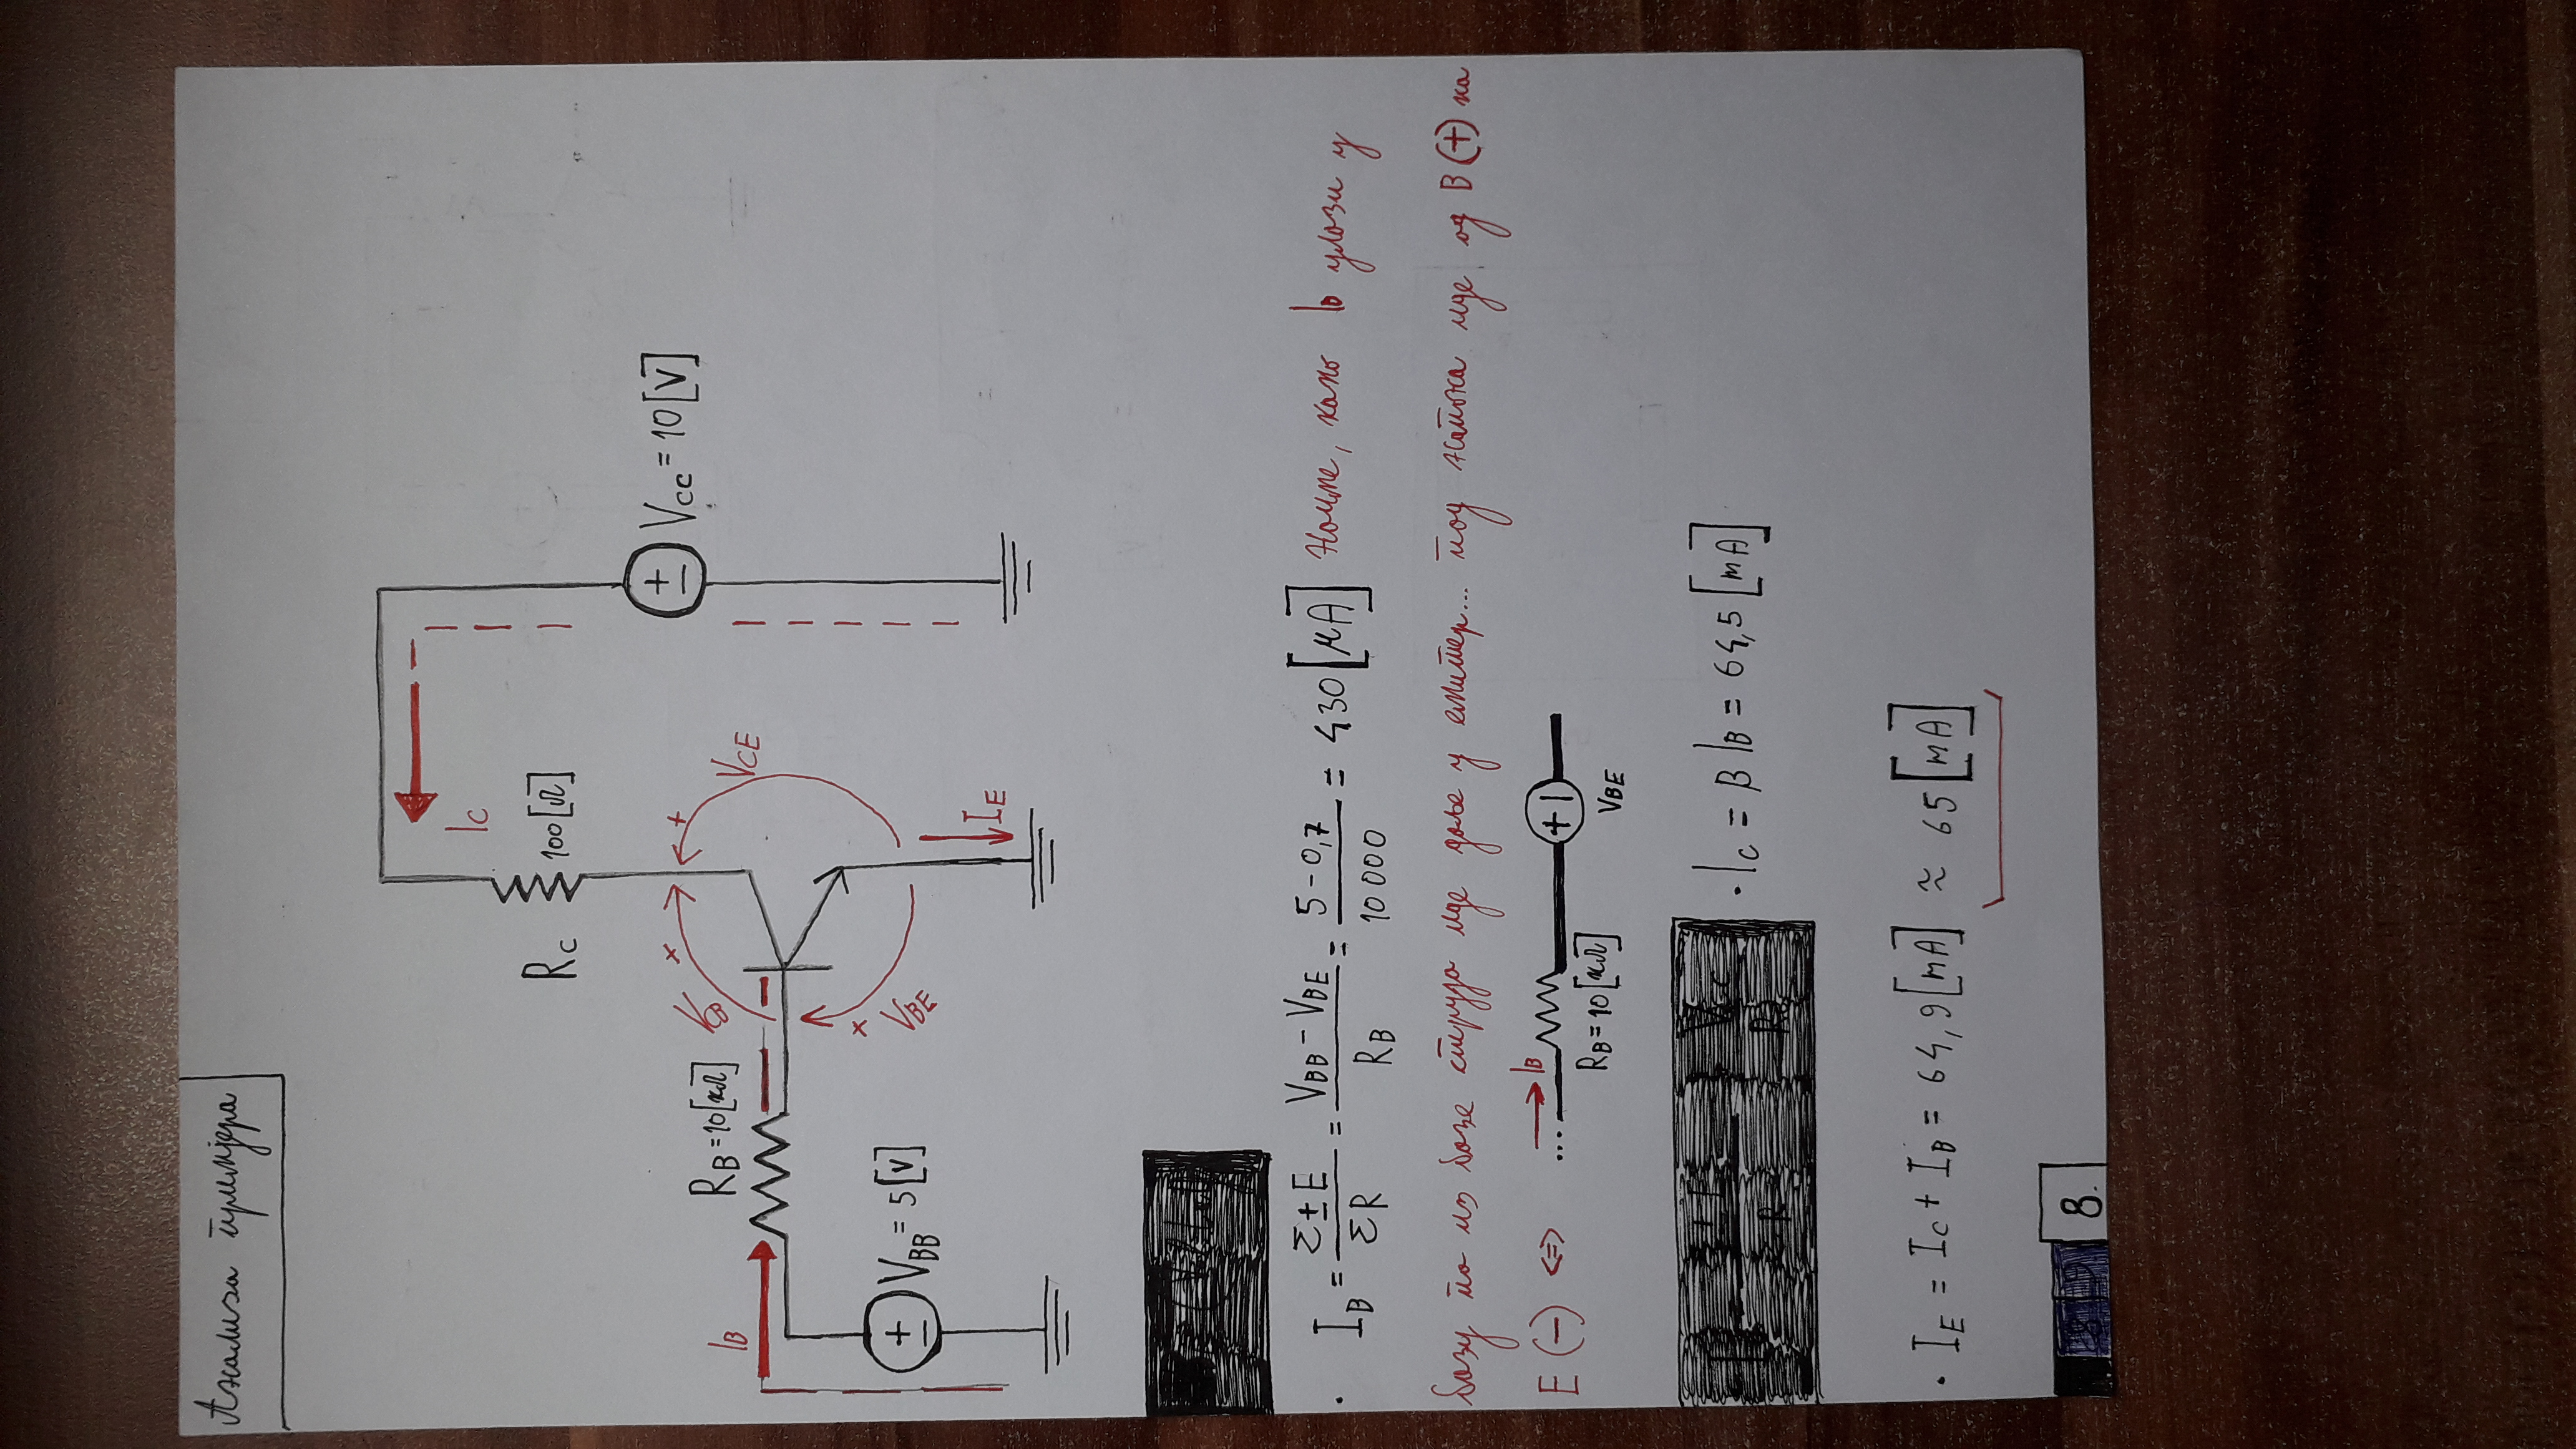 Анализа примјера
IC
RC 100[Ω]
VCC = 10[V]
RB = 10[кΩ]
IB
VCB
VCE
VBB = 5[V]
VBE
IE
· IB = Σ±E / ΣR = VBB − VBE / RB = 5 − 0,7 / 10 000 = 430 [μA] Наиме, како Ib улази у
базу па из базе струја иде даље у емитер... пад напона иде од B (+) ка
E (−) <=> ... IB
RB = 10[кΩ] VBE
· IC = β IB = 64,5 [mA]
· IE = IC + IB = 64,9 [mA] ≈ 65 [mA]
8.